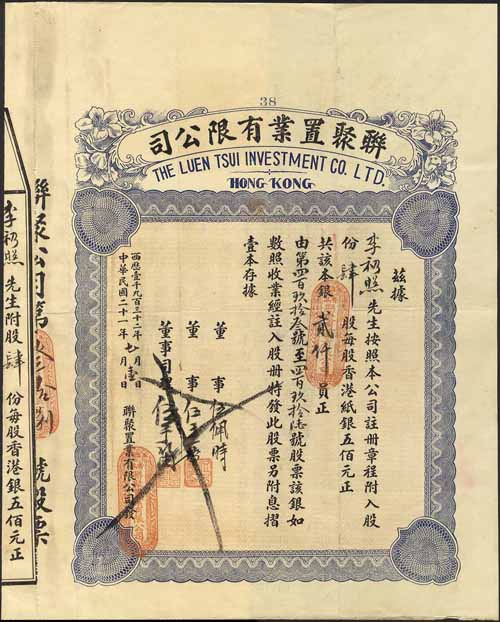 38
聯聚置業有限公司
THE LUEN TSUI INVESTMENT CO. LTD.
HONG KONG
茲據
李礽照先生按照本公司註册章程附入股
份肆股每股香港紙銀五佰元正
共該本銀貳仟員正
由第四百玖拾叁號至四百玖拾陸號股票該銀如
數照收業經註入股册特發此股票另附息摺
壹本存據
董事伍佩時
董事伍
董事司理伍
西歷壹千九百三十二年七月壹日
中華民國二十一年七月壹日
聯聚置業有限公司發
聯聚公司第 號股票
李礽照先生附股肆份每股香港銀五佰元正